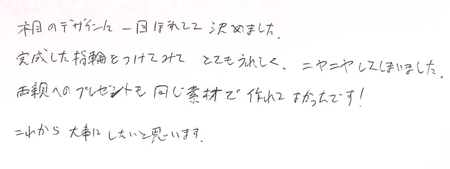 木目のデザインに一目ぼれして決めました。
完成した指輪をつけてみてとてもうれしく、ニヤニヤしてしまいました。
両親へのプレゼントも同じ素材で作れてよかったです!
これから大事にしたいと思います。